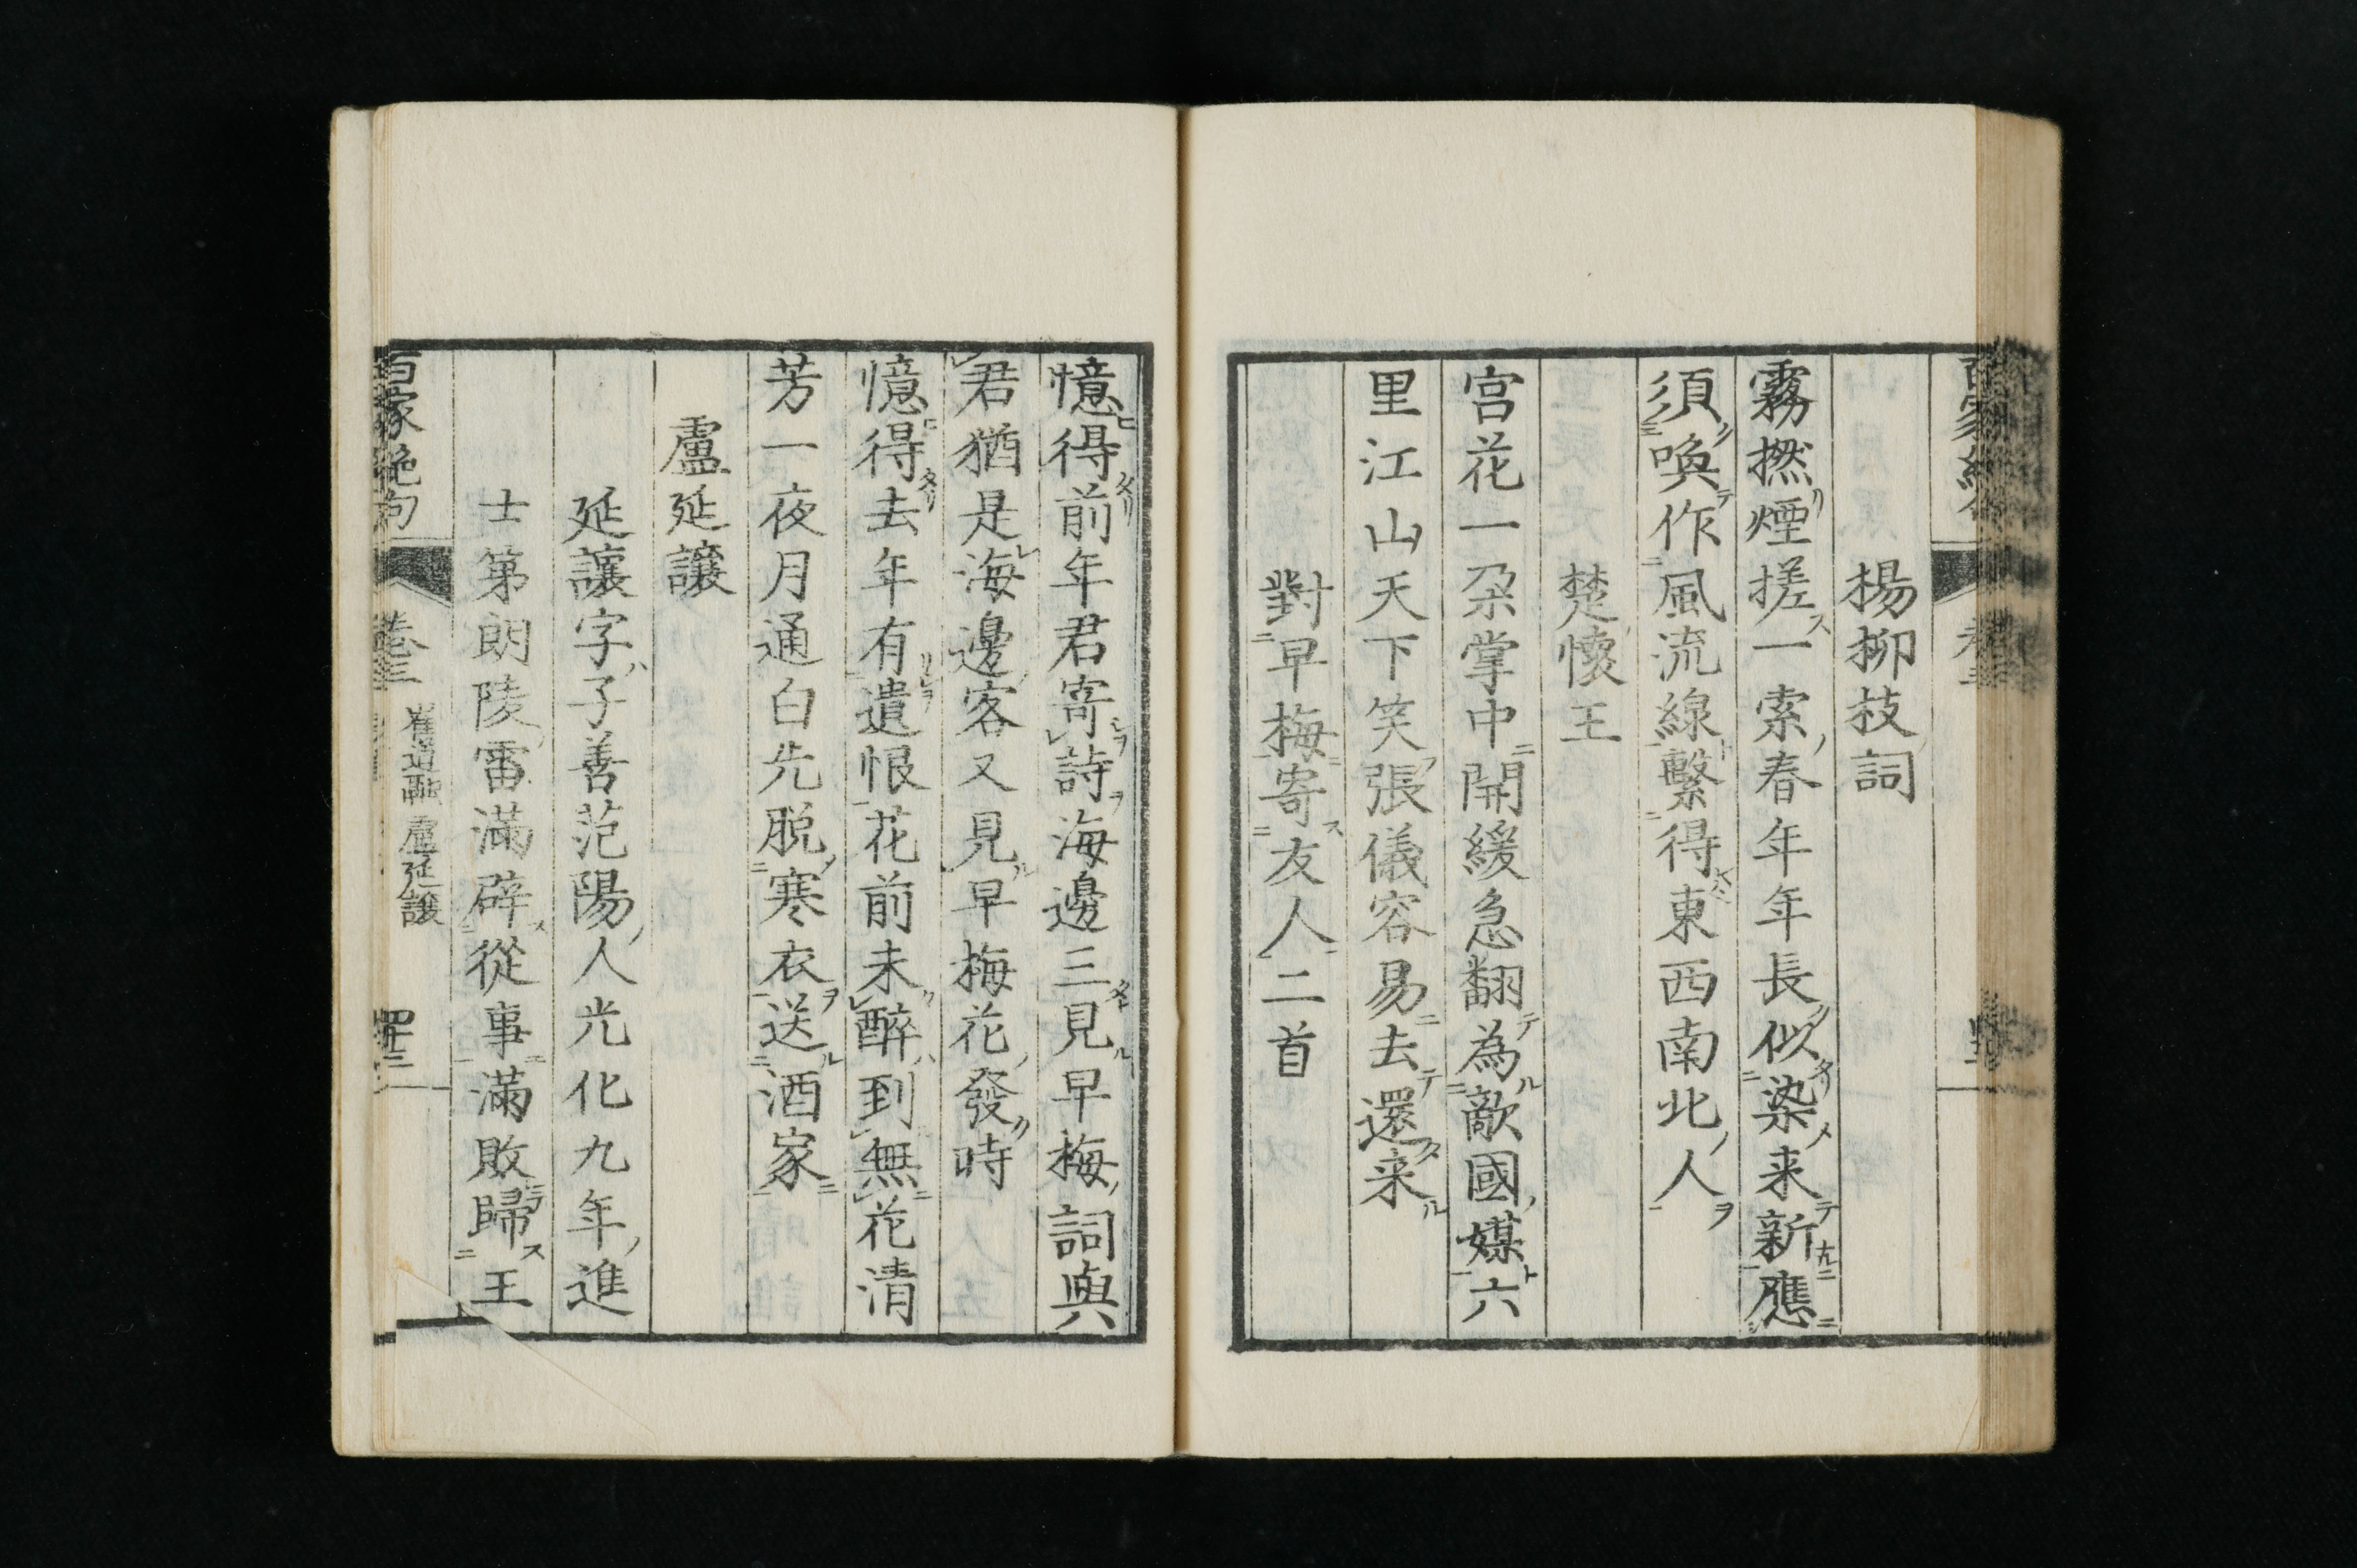 楊柳枝詞
霧撚煙搓一索春年年長似染来新應
須喚作風流線繫得東西南北人
楚懷王
宮花一朶掌中開緩急翻為敵國媒六
里江山天下笑張儀容易去還来
對早梅寄友人二首
憶得前年君寄詩海邊三見早梅詞與
君猶是海邊客又見早梅花發時
憶得去年有遺恨花前未醉到無花清
芳一夜月通白先脱寒衣送酒家
盧延讓
延讓字子善范陽人光化九年進
士第朗陵雷滿辟從事滿敗歸王
百家絶句
卷三
崔道融 盧延讓